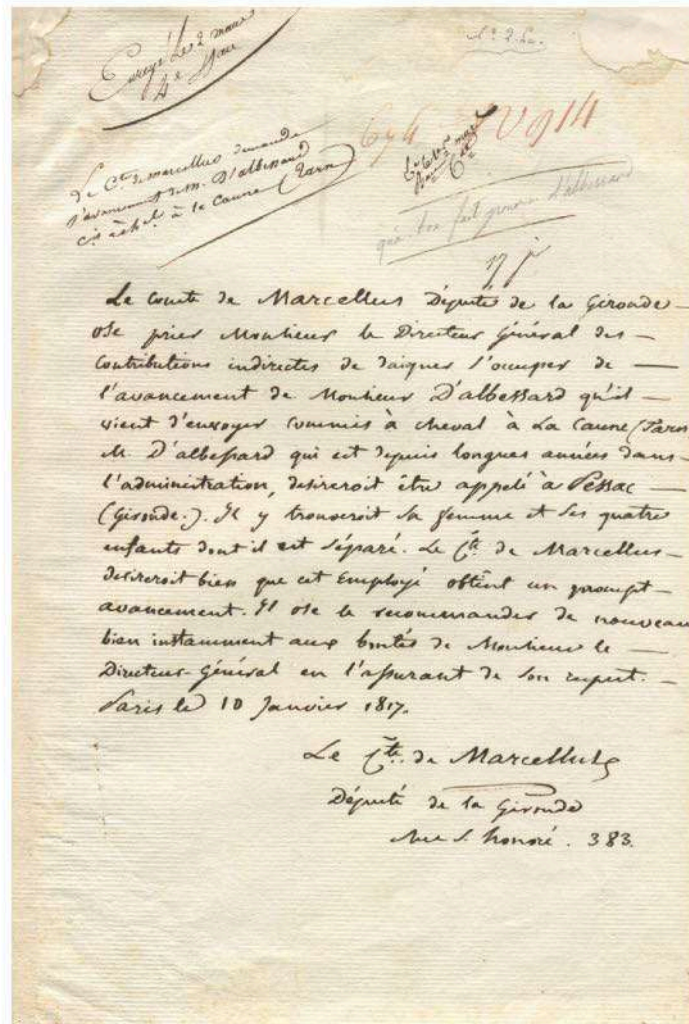 Enregé le 2 mars
4e Don
Le Cte de marcellus demande
l'avancement de M. D'albessard
cis à chel à la Caune (Tarn)
674
V914
Le Comte de Marcellus Député de la Gironde
ose prier Monsieur le Directeur Général des
Contributions indirectes de daigner s'occuper de
l'avancement de Monsieur D'albessard qu'il
vient d'envoyer commis à cheval à La Caune (Tarn
M. D'albessard qui est depuis longues années dans
l'administration, desireroit être appelé à Pessac
(Gironde.). Il y trouveroit sa femme et ses quatre
enfants dont il est séparé. Le Cte de Marcellus
desireroit bien que cet Employé obtînt un prompt
avancement. Il ose le recommander de nouveau
bien instamment aux bontés de Monsieur le
Directeur-Général en l'assurant de son respect.
Paris le 10 Janvier 1817.
Le Cte de Marcellus
Député de la Gironde
Rue S. honoré. 383.